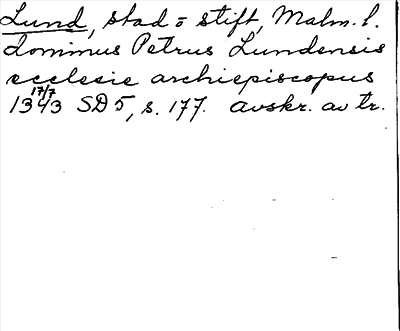 Lund, stad o stift, Malm. l.
dominus Petrus Lundensis
ecclesie archiepiscopus
17/7 1343 SD 5, s. 177. avskr. av tr.